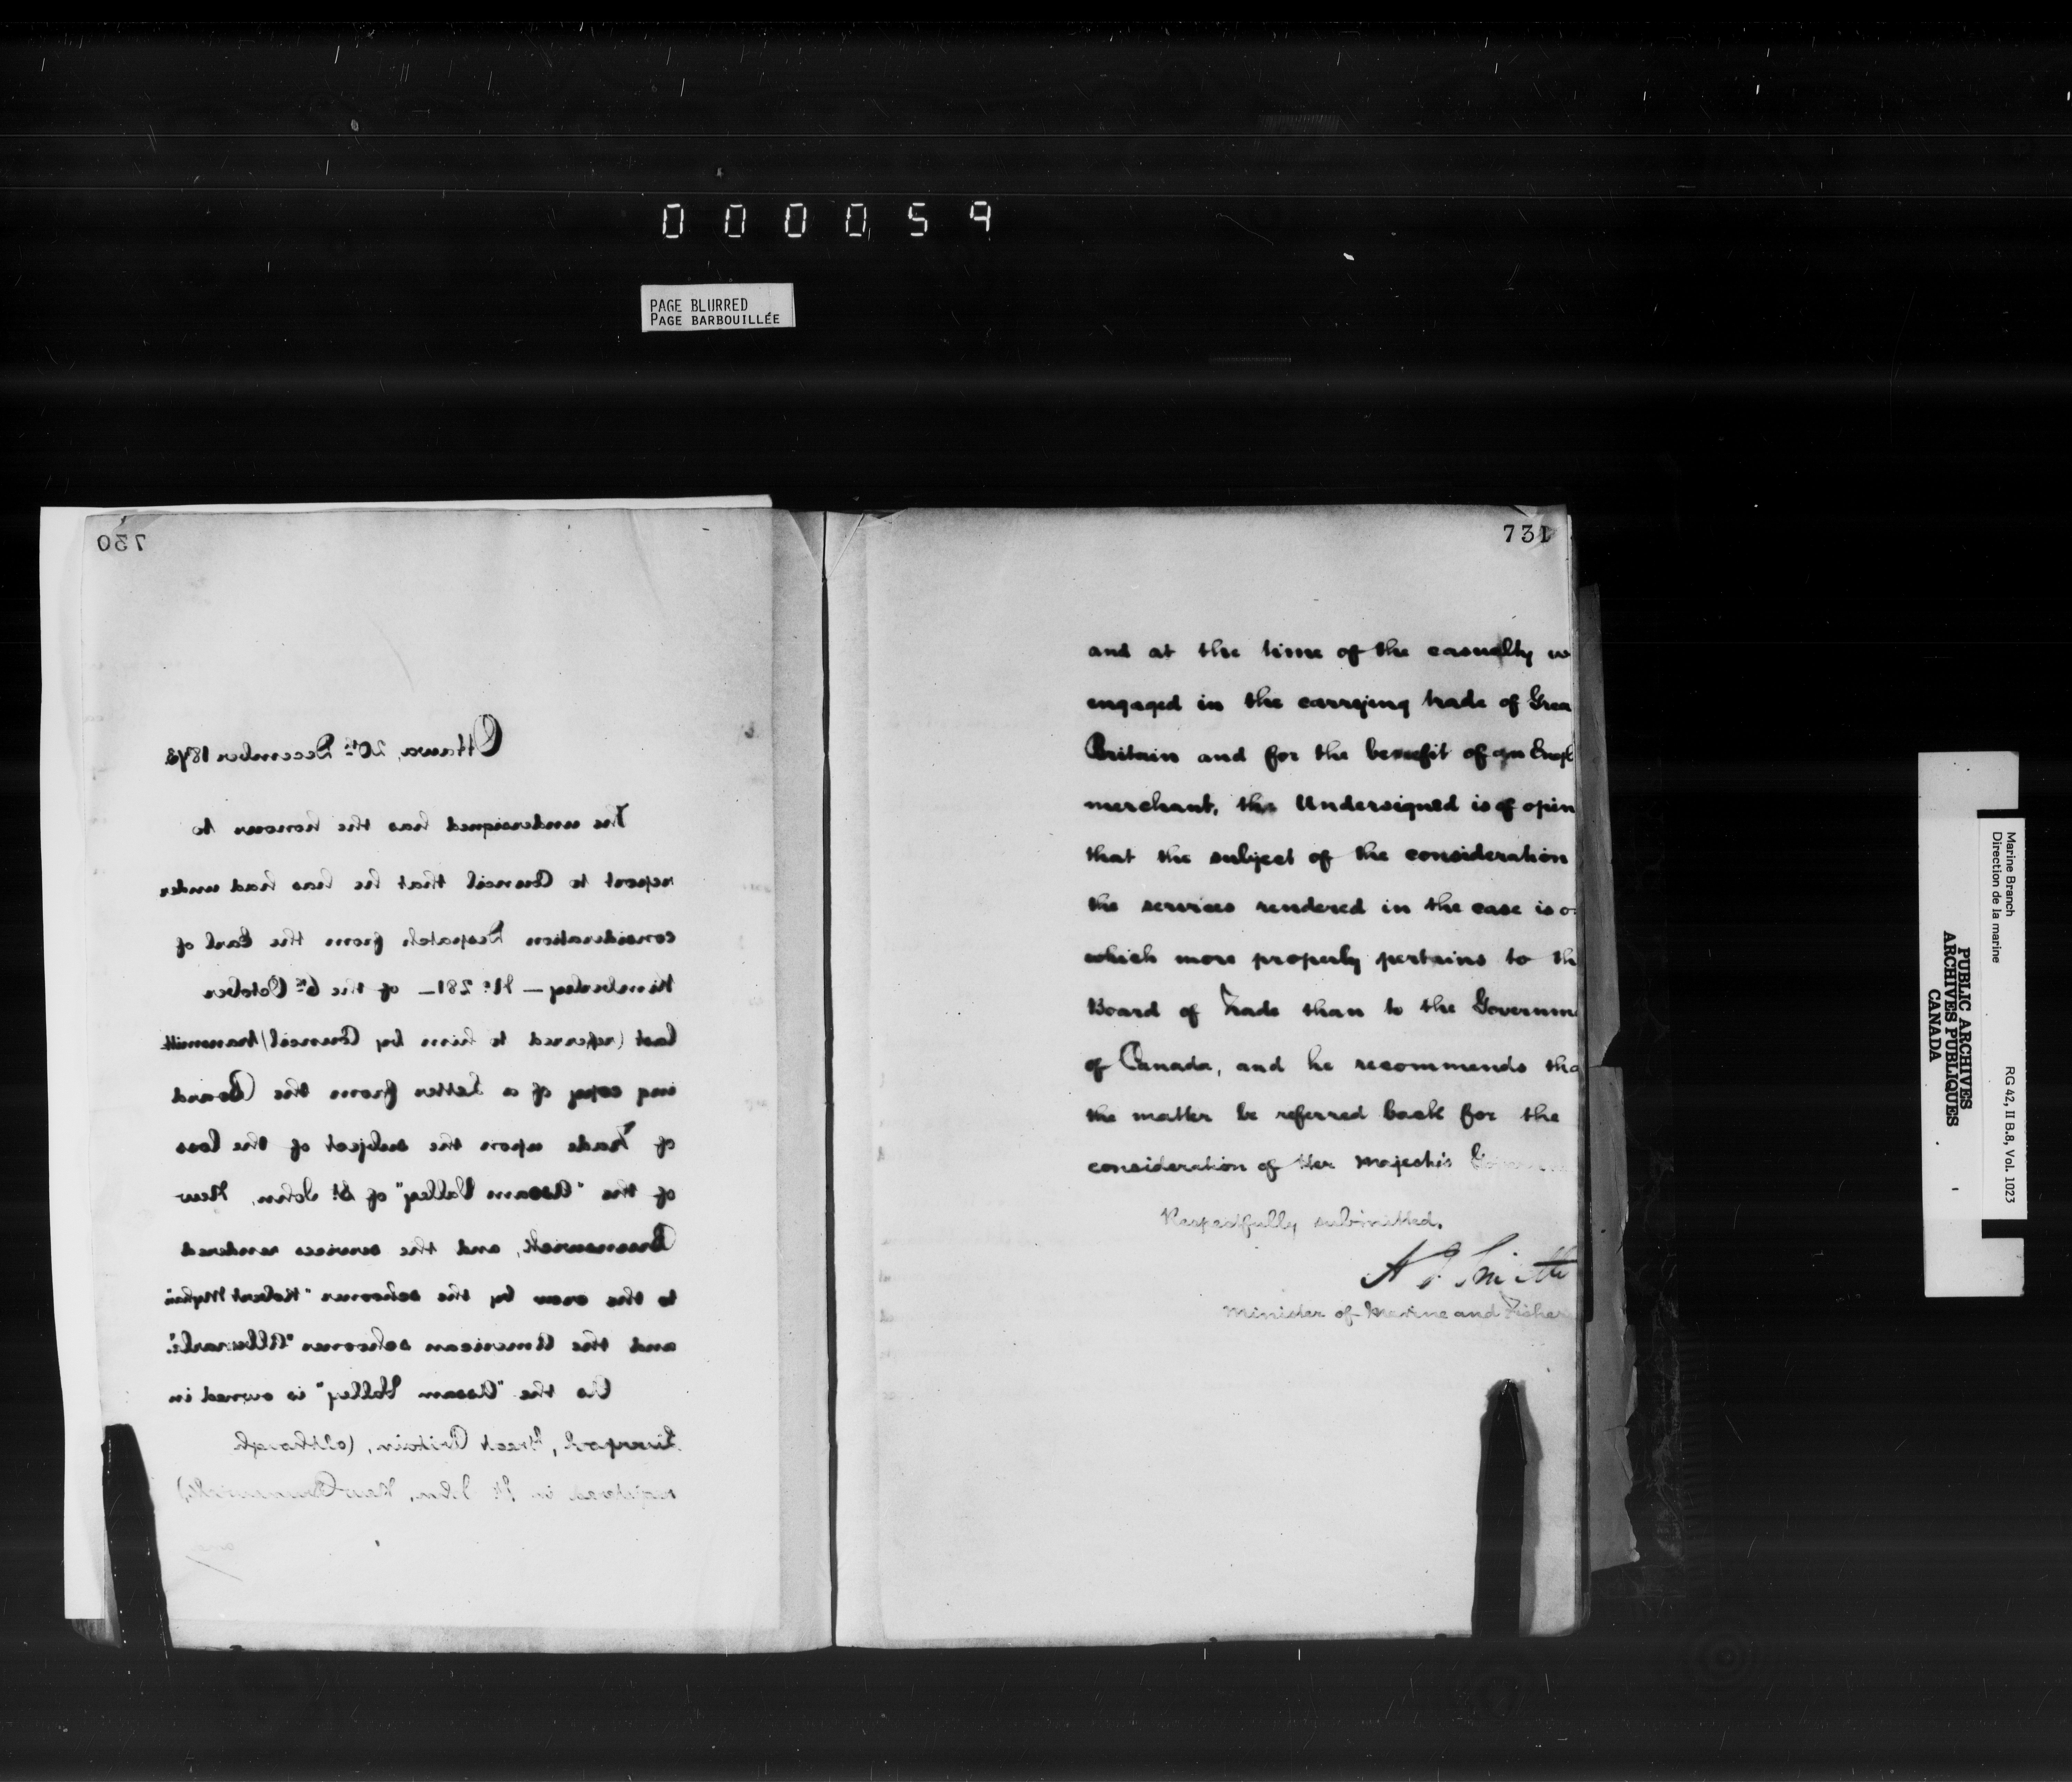 000059
PAGE BLURRED
PAGE BARBOUILLÉE
730
Ottawa, 20th December 1873
The undersigned has the honour to
report to Council that he has had under
consideration Despatch from the Earl of
Kimberley — No 281 — of the 6th October
last (referred to him by Council) transmitt
ing copy of a Letter from the Board
of Trade upon the subject of the loss
of the "Assam Valley" of St John, New
Brunswick, and the services rendered
to the crew by the schooner "Robert
and the American schooner
As the "Assam Valley" is owned in
Liverpool, Great Britain, (although
registered in St John, New Brunswick)
and
731
and at the time of the casualty w
engaged in the carrying trade of Grea
Britain and for the benefit of an Engl
merchant, the Undersigned is of opin
that the subject of the consideration
the services rendered in the case is o
which more properly pertains to th
Board of Trade than to the Governme
of Canada, and he recommends tha
the matter be referred back for the
consideration of Her Majesty's Governme
Respectfully submitted.
A J Smith
Minister of Marine and Fisher
Marine Branch
Direction de la marine
RG 42, II B.8, Vol. 1023
PUBLIC ARCHIVES
ARCHIVES PUBLIQUES
CANADA